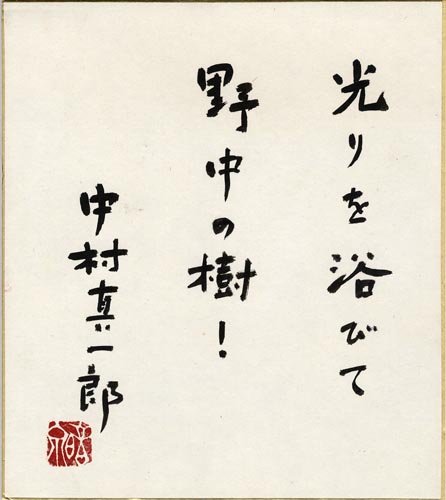 光りを浴びて
野中の樹！
中村真一郎